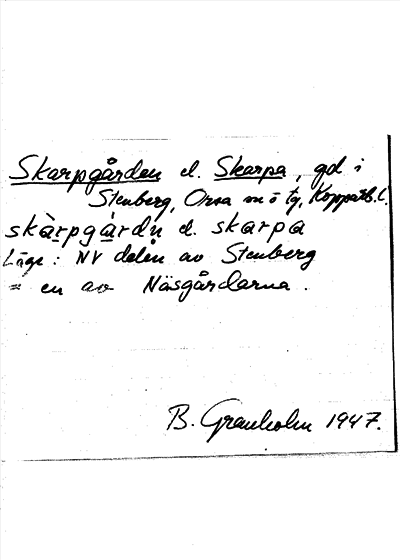 Skarpgården el. Skarpa, gd i
Stenberg, Orsa sn o tg, Kopparb. l.
skàrpgárdṇ el. skarpa
Läge: NV delen av Stenberg
= en av Näsgårdarna.
B. Granholm 1947.